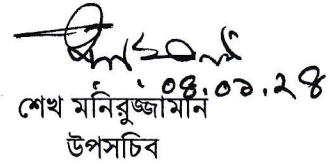 ০৪.০১.২৪
শেখ মনিরুজ্জামান
উপসচিব